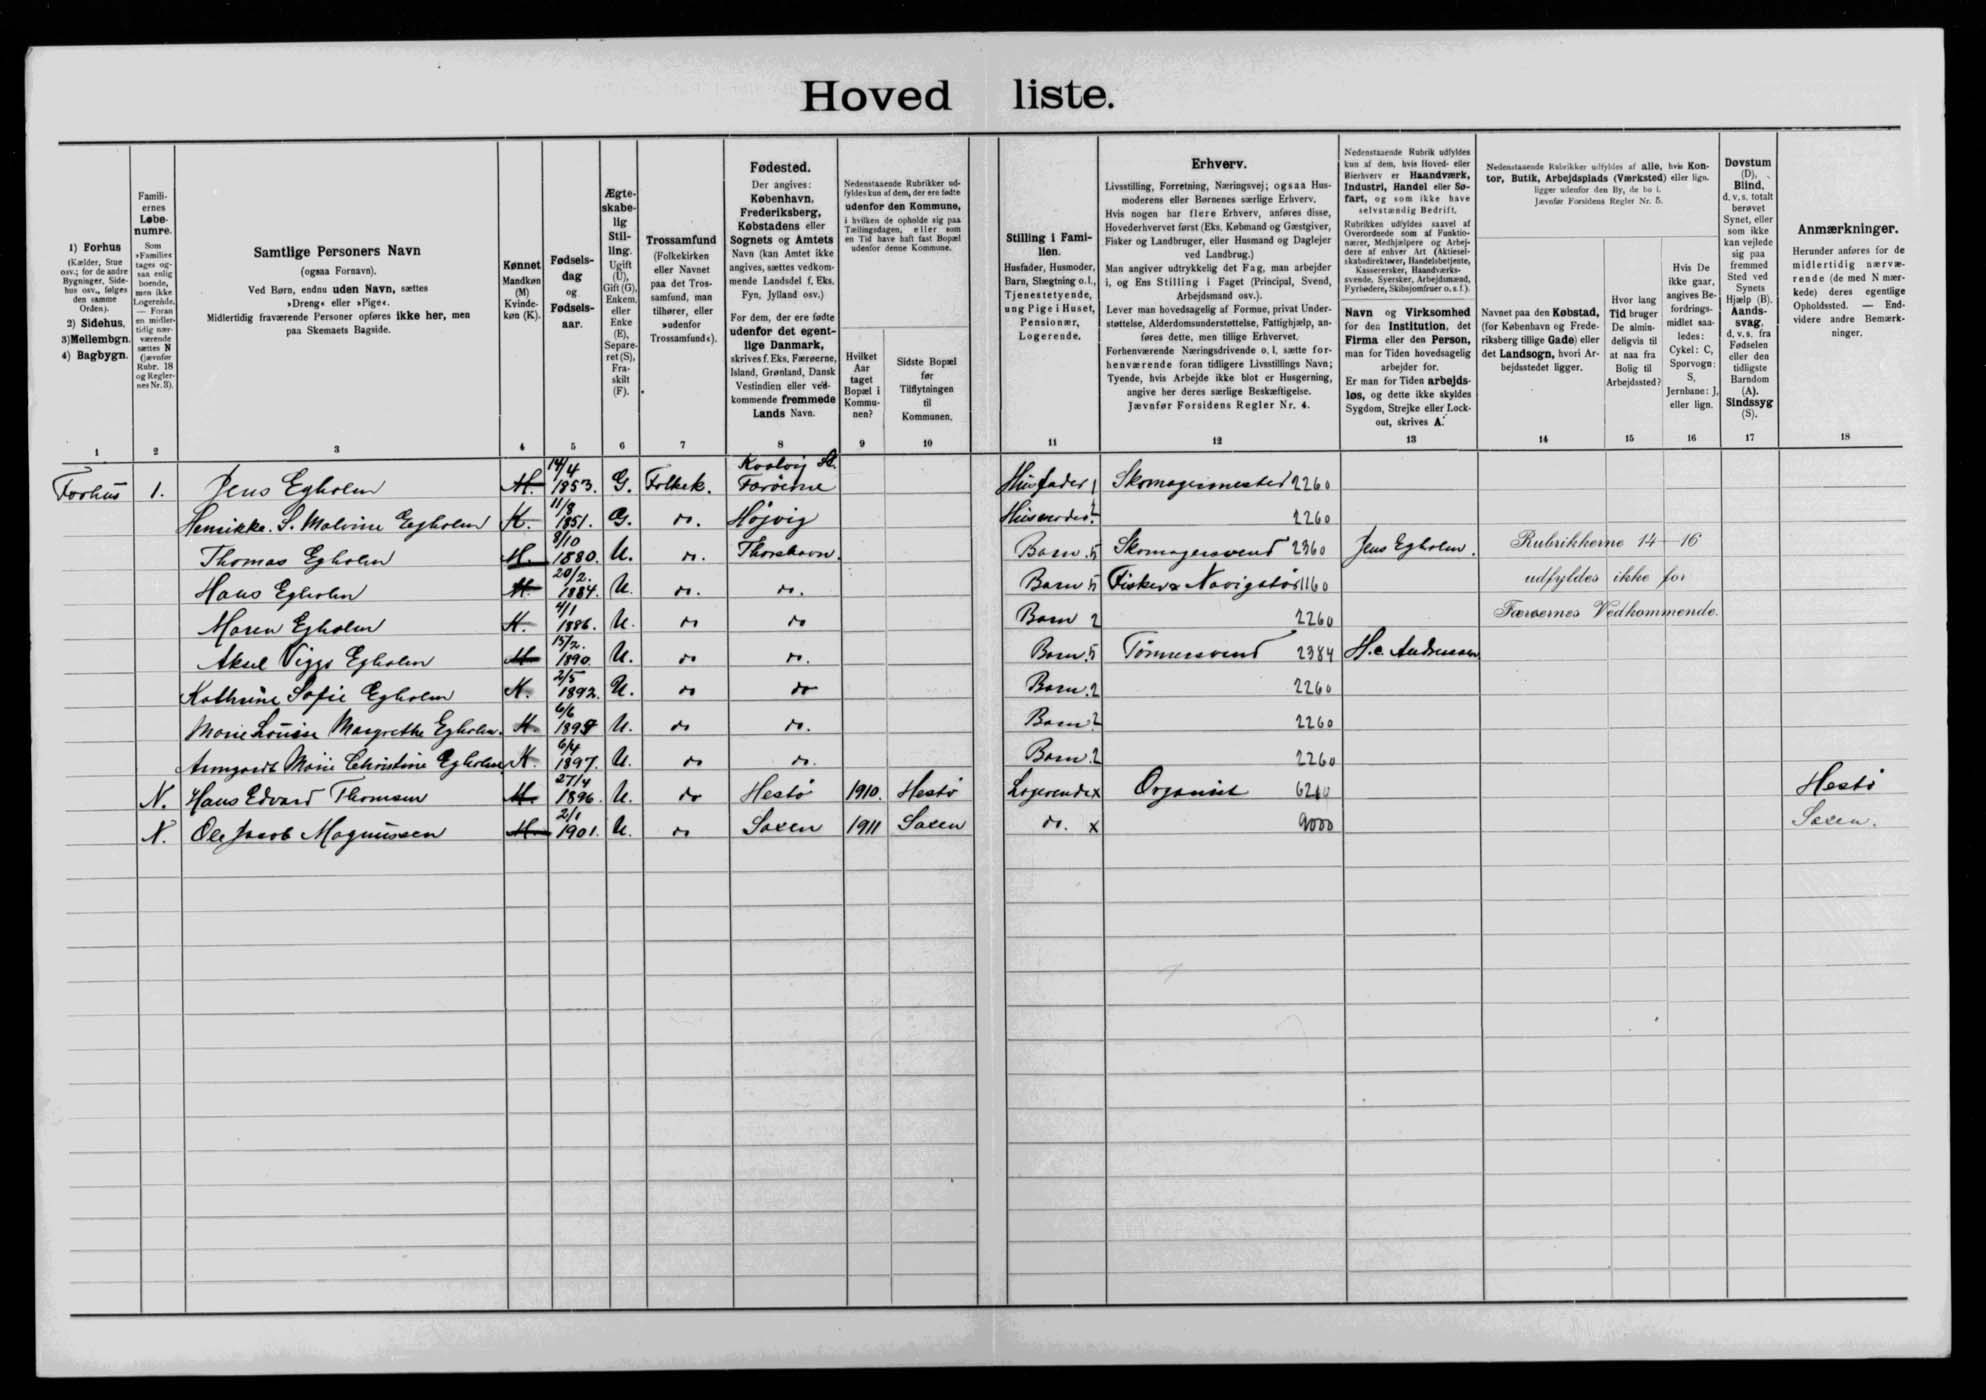 Hovedliste.
1) Forhus
(Kælder, Stue osv.; for de andre Bygninger, Sidehus osv., følges den samme Orden).
2) Sidehus,
3) Mellembgn.
4) Bagbygn.
Familiernes Løbenumre.
Som »Familie« tages ogsaa enlig boende, men ikke Logerende.
— Foran en midlertidig nærværende sættes N (jævnfør Rubr. 18 og Reglernes Nr. 3).
Samtlige Personers Navn
(ogsaa Fornavn).
Ved Børn, endnu uden Navn, sættes »Dreng« eller »Pige«.
Midlertidig fraværende Personer opføres ikke her, men paa Skemaets Bagside.
Kønnet
Mandkøn (M)
Kvindekøn (K).
Fødselsdag og Fødselsaar.
Ægteskabelig Stilling.
Ugift (U), Gift (G), Enkem. eller Enke (E), Separeret (S), Fraskilt (F).
Trossamfund
(Folkekirken eller Navnet paa det Trossamfund, man tilhører, eller »udenfor Trossamfund«).
Fødested.
Der angives:
København, Frederiksberg, Købstadens eller Sognets og Amtets Navn (kan Amtet ikke angives, sættes vedkommende Landsdel f. Eks. Fyn, Jylland osv.)
For dem, der ere fødte udenfor det egentlige Danmark, skrives f. Eks. Færøerne, Island, Grønland, Dansk Vestindien eller vedkommende fremmede Lands Navn.
Nedenstaaende Rubrikker udfyldes kun af dem, der ere fødte udenfor den Kommune, i hvilken de opholde sig paa Tællingsdagen, eller som en Tid have haft fast Bopæl udenfor denne Kommune.
Hvilket Aar taget Bopæl i Kommunen?
Sidste Bopæl før Tilflytningen til Kommunen.
Stilling i Familien.
Husfader, Husmoder, Barn, Slægtning o. l., Tjenestetyende, ung Pige i Huset, Pensionær, Logerende.
Erhverv.
Livsstilling, Forretning, Næringsvej; ogsaa Husmoderens eller Børnenes særlige Erhverv.
Hvis nogen har flere Erhverv, anføres disse, Hovederhvervet først (Eks. Købmand og Gæstgiver, Fisker og Landbruger, eller Husmand og Daglejer ved Landbrug.)
Man angiver udtrykkelig det Fag, man arbejder i, og Ens Stilling i Faget (Principal, Svend, Arbejdsmand osv.).
Lever man hovedsagelig af Formue, privat Understøttelse, Alderdomsunderstøttelse, Fattighjælp, anføres dette, men tillige Erhvervet.
Forhenværende Næringsdrivende o. l. sætte forhenværende foran tidligere Livsstillings Navn;
Tyende, hvis Arbejde ikke blot er Husgerning, angive her deres særlige Beskæftigelse.
Jævnfør Forsidens Regler Nr. 4.
Nedenstaaende Rubrik udfyldes kun af dem, hvis Hoved- eller Bierhverv er Haandværk, Industri, Handel eller Søfart, og som ikke have selvstændig Bedrift.
Rubrikken udfyldes saavel af Overordnede som af Funktionærer, Medhjælpere og Arbejdere af enhver Art (Aktieselskabsdirektører, Handelsbetjente, Kasserersker, Haandværkssvende, Syersker, Arbejdsmænd, Fyrbødere, Skibsjomfruer o. s. f.).
Navn og Virksomhed for den Institution, det Firma eller den Person, man for Tiden hovedsagelig arbejder for.
Er man for Tiden arbejdsløs, og dette ikke skyldes Sygdom, Strejke eller Lockout, skrives A.
Nedenstaaende Rubrikker udfyldes af alle, hvis Kontor, Butik, Arbejdsplads (Værksted) eller lign. ligger udenfor den By, de bo i.
Jævnfør Forsidens Regler Nr. 5.
Navnet paa den Købstad, (for København og Frederiksberg tillige Gade) eller det Landsogn, hvori Arbejdsstedet ligger.
Hvor lang Tid bruger De almindeligvis til at naa fra Bolig til Arbejdssted?
Hvis De ikke gaar, angives Befordringsmidlet saaledes: Cykel: C, Sporvogn: S, Jernbane: J, eller lign.
Døvstum (D), Blind, d. v. s. totalt berøvet Synet, eller som ikke kan vejlede sig paa fremmed Sted ved Synets Hjælp (B). Aandssvag, d. v. s. fra Fødselen eller den tidligste Barndom (A). Sindssyg (S).
Anmærkninger.
Herunder anføres for de midlertidig nærværende (de med N mærkede) deres egentlige Opholdssted. — Endvidere andre Bemærkninger.
1 2 3 4 5 6 7 8 9 10 11 12 13 14 15 16 17 18
Forhus 1. Jens Egholm M. 14/4 1853. G. Folkek. Færøerne Husfader 1 Skomagermester 2260
Henrikke. S. Malvine Egholm K. 11/8 1851. G. do. Højvig Husmoder 2 2260
Thomas Egholm M. 8/10 1880. U. do. Thorshavn. Barn. 5 Skomagersvend 2360 Jens Egholm. Rubrikkerne 14-16
Hans Egholm M. 20/2. 1884. U. do. do. Barn 5 Fisker & Navigatør 1160 udfyldes ikke for
Maren Egholm K. 4/1 1886. U. do do Barn 2 2260 Færøernes Vedkommende.
Aksel Viggo Egholm M 15/2. 1890. U. do do. Barn. 5 Tømmersvend 2384 H. C. Andreasen
Kathrine Sofie Egholm K. 2/5 1892. U. do do Barn. 2 2260
Marie Louise Margrethe Egholm. K. 6/6 1894 U. do do. Barn 2 2260
Armgardt Marie Christine Egholm K. 6/4 1897. U. do do. Barn. 2 2260
N. Hans Edvard Thomsen M. 27/4 1896. U. do Hestø 1910. Hestø Logerende x Organist 6210 Hestø
N. Ole Jacob Magnussen M. 2/1 1901. U. do Saxen 1911 Saxen do. x 9000 Saxen.